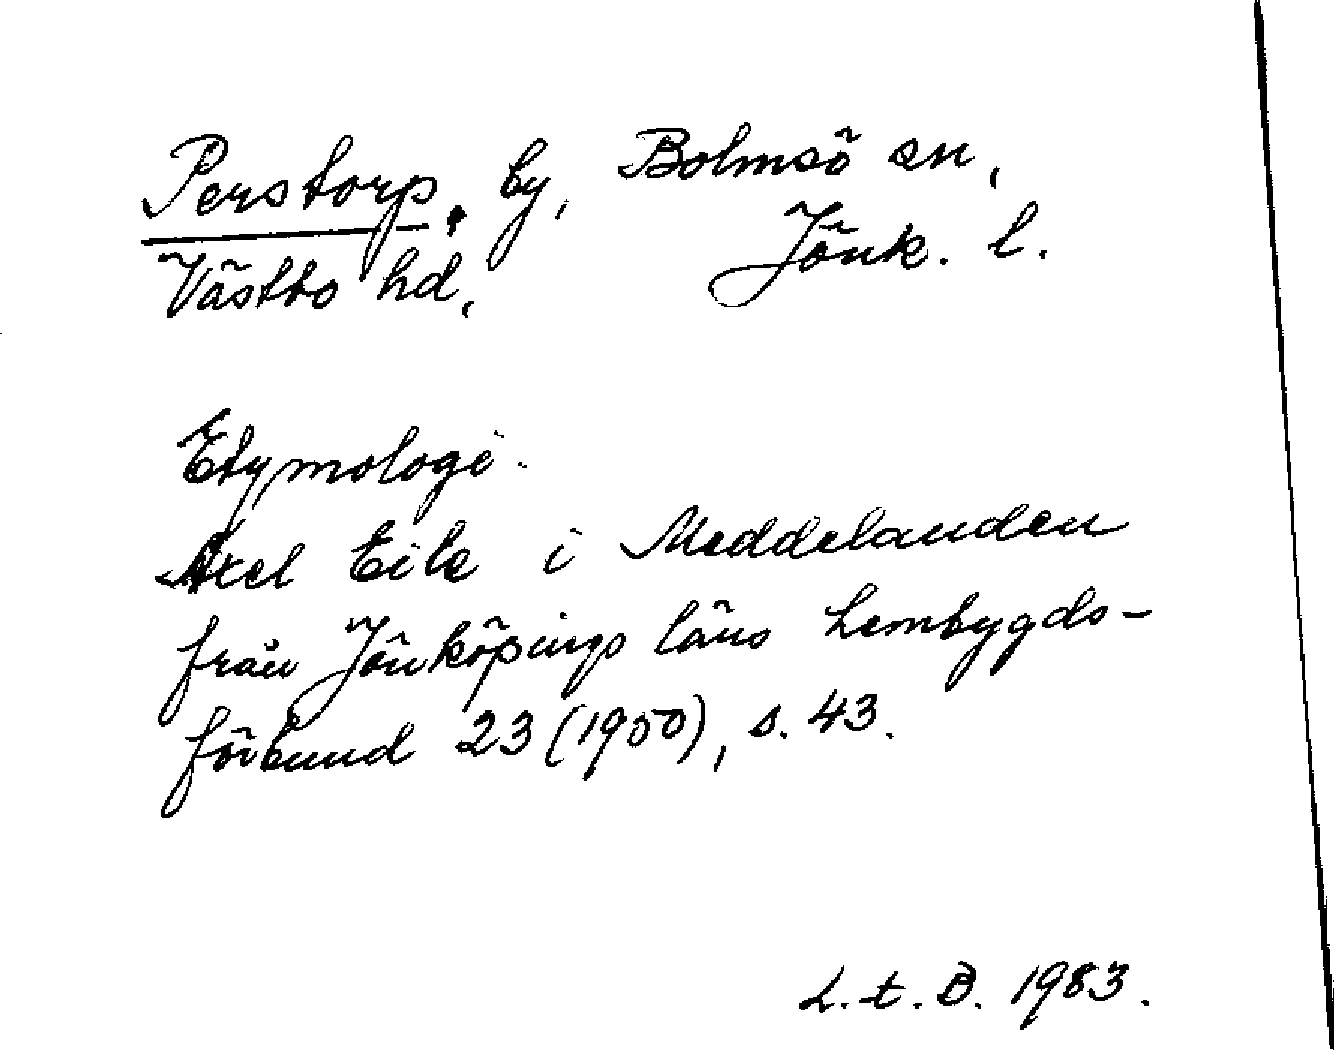 Perstorp, by, Bolmsö sn,
Västbo hd, Jönk. l.
Etymologi.
Axel Eile i Meddelanden
från Jönköpings läns hembygds-
förbund 23 (1950), s. 43.
L. t. B. 1983.